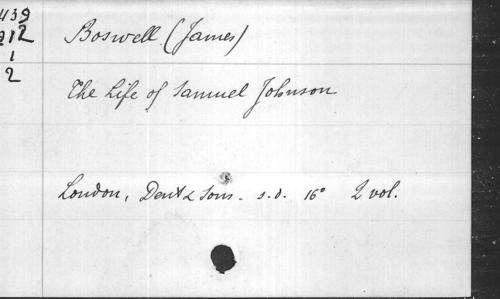 439
212
1
2
Boswell (James)
The Life of Samuel Johnson
London, Dent & Sons. s.d. 16° 2 vol.